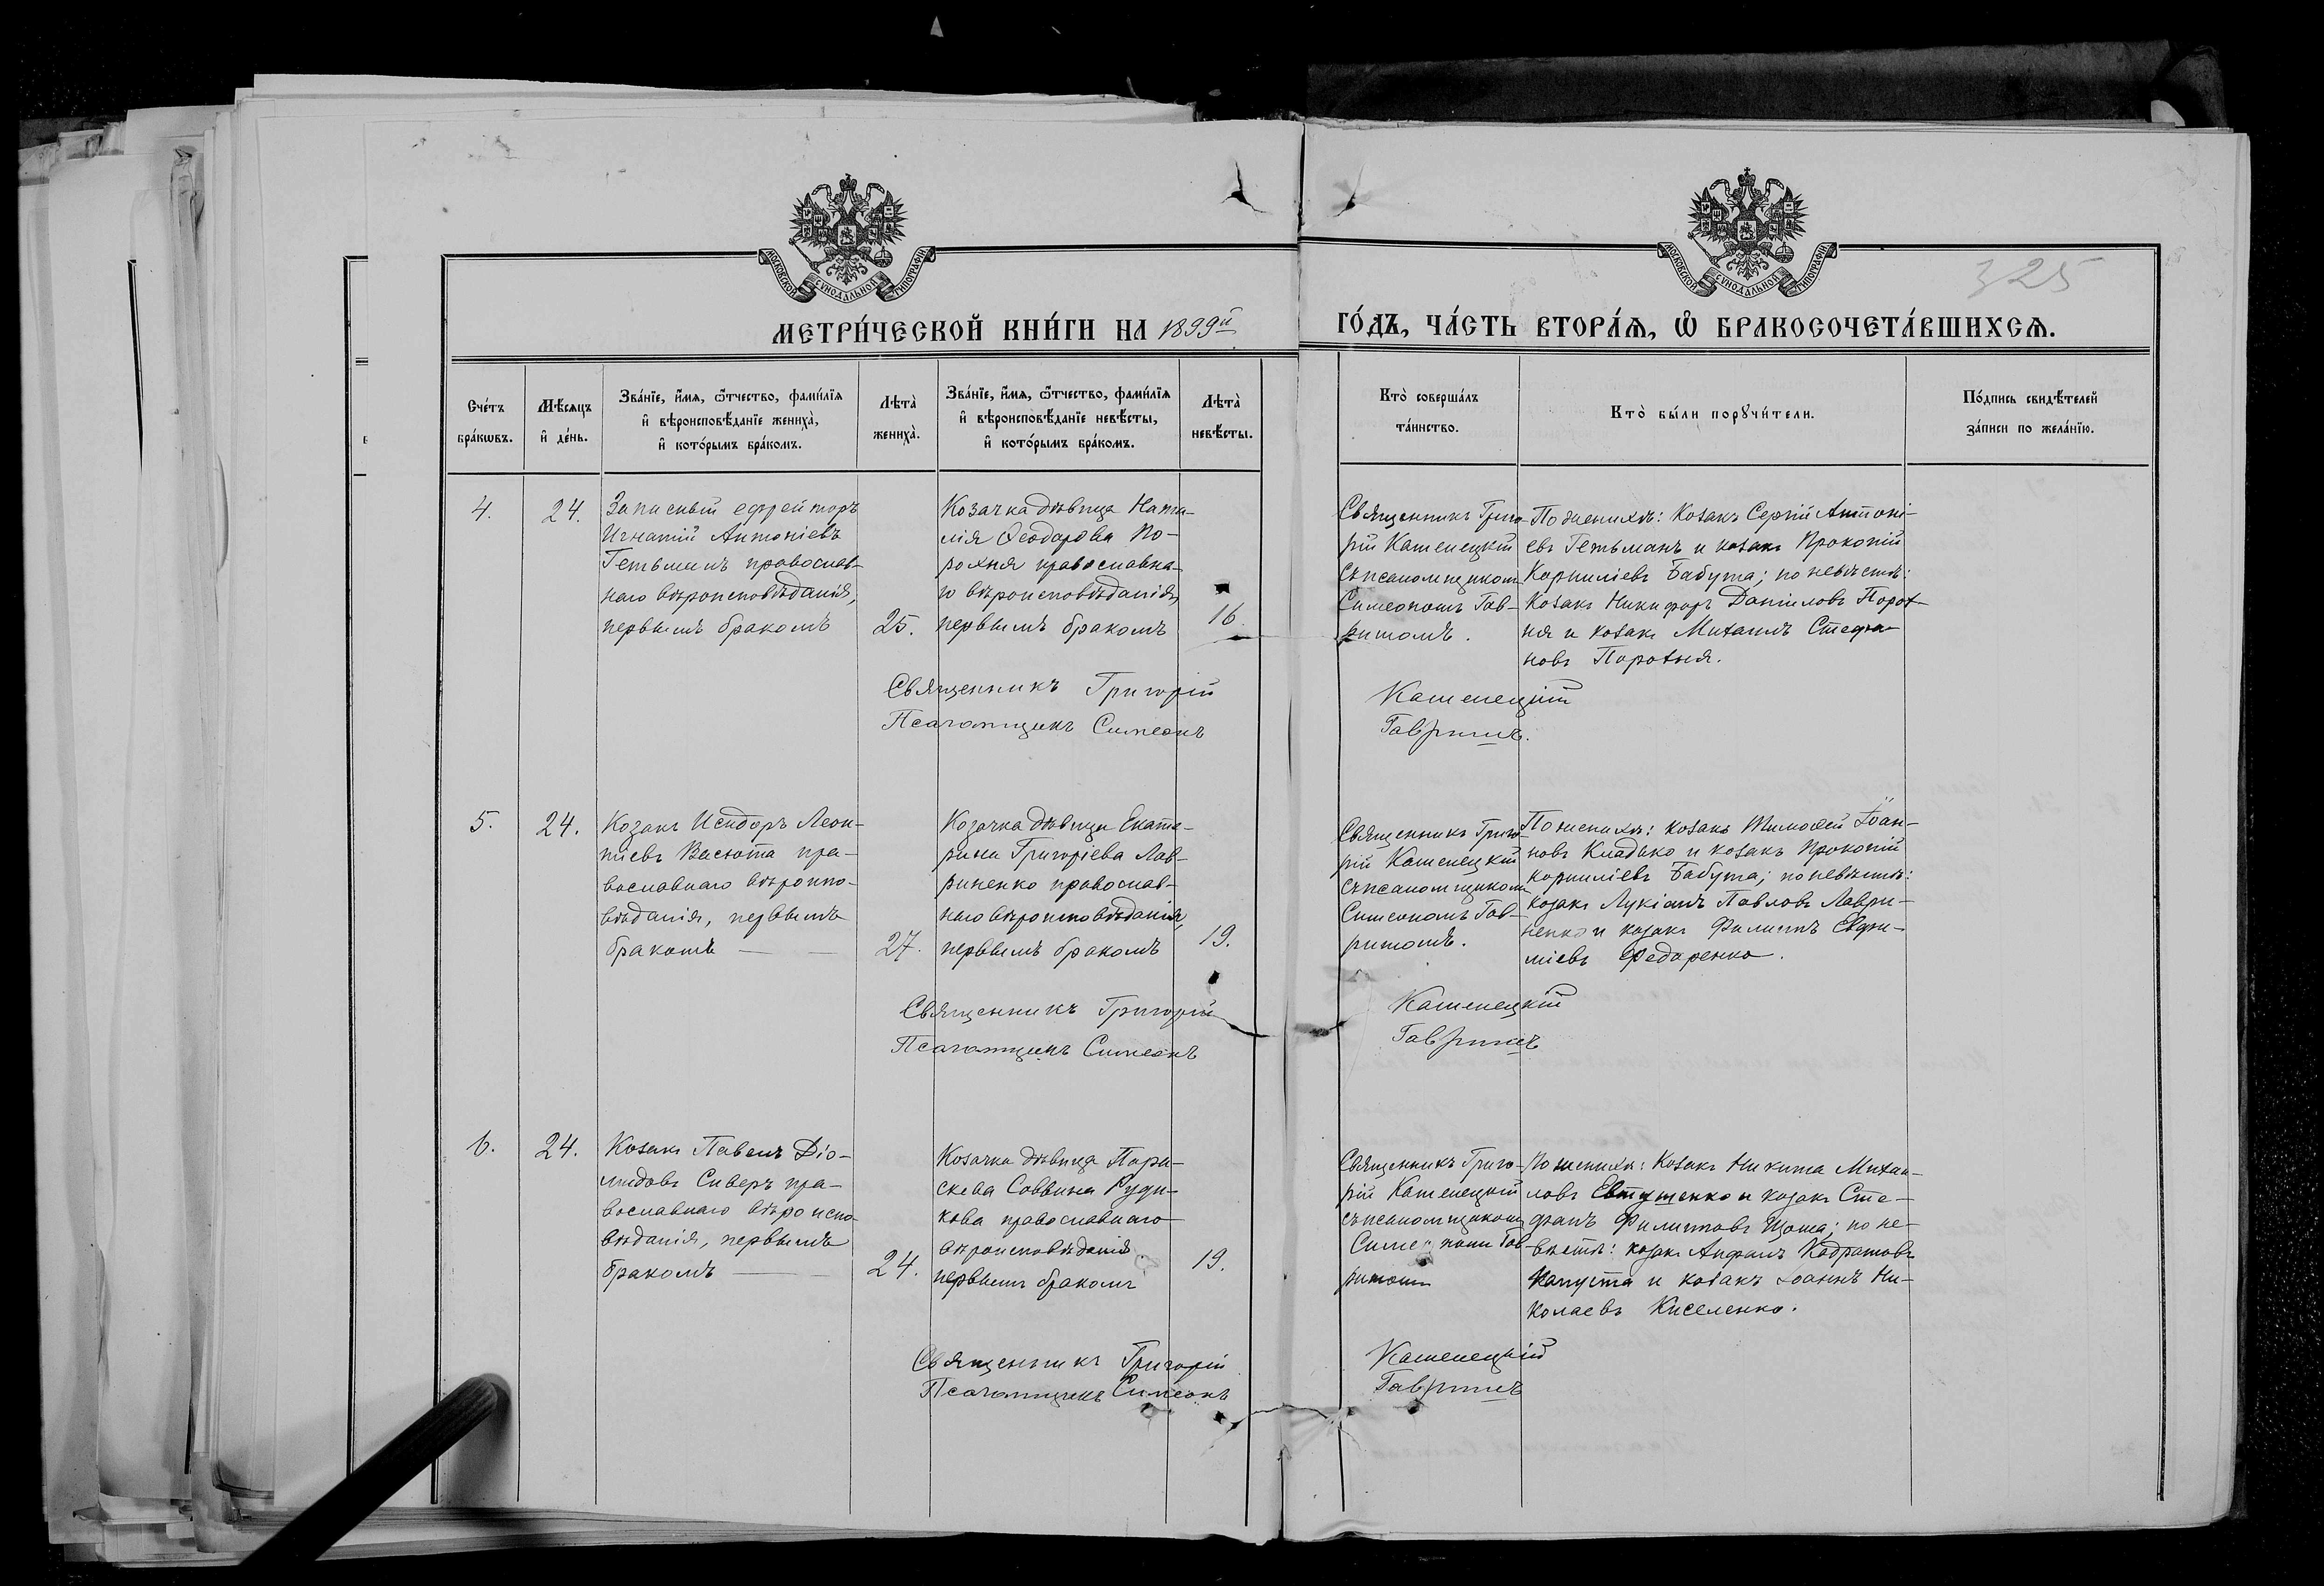 МОСКОВСКОЙ СѴНОДАЛЬНОЙ ТИПОГРАФІИ
МОСКОВСКОЙ СѴНОДАЛЬНОЙ ТИПОГРАФІИ
325
МЕТРИ́ЧЕСКОЙ КНИ́ГИ НА 1899й
ГО́ДЪ, ЧА́СТЬ ВТОРА́Ѧ, Ѡ҆ БРАКОСОЧЕТА́ВШИХСѦ.
Сче́тъ
бра́кѡвъ.
Мѣ́сяцъ
и҆ де́нь.
Зва́нїе, и҆́мя, ѻ҆́тчество, фами́лїя
и҆ вѣроисповѣ́данїе жениха̀,
и҆ кото́рымъ бра́комъ.
Лѣта̀
жениха̀.
Зва́нїе, и҆́мя, ѻ҆́тчество, фами́лїя
и҆ вѣроисповѣ́данїе невѣ́сты,
и҆ кото́рымъ бра́комъ.
Лѣта̀
невѣ́сты.
Кто̀ соверша́лъ
та́инство.
Кто̀ бы́ли порꙋчи́тели.
По́дпись свидѣ́телей
за́писи по жела́нїю.
4.
24.
Запасный ефрейторъ
Игнатій Антоніевъ
Гетьманъ православ-
наго вѣроисповѣданія,
первымъ бракомъ
25.
Козачка дѣвица Ната-
лія Ѳеодорова По-
рохня православна-
го вѣроисповѣданія,
первымъ бракомъ
16.
Священникъ Григо-
рій Каменецкій
съ псаломщикомъ
Симеономъ Гав-
ришомъ.
По женихѣ: козакъ Сергій Антоні-
евъ Гетьманъ и козакъ Прокопій
Корниліевъ Бабута; по невѣстѣ:
козакъ Никифоръ Даніиловъ Порох-
ня и козакъ Михаилъ Стефа-
новъ Порохня.
Священникъ Григорій Каменецкій
Псаломщикъ Симеонъ Гавришъ.
5.
24.
Козакъ Исидоръ Леон-
тіевъ Васюта пра-
вославнаго вѣроиспо-
вѣданія, первымъ
бракомъ
27.
Козачка дѣвица Екате-
рина Григоріева Лав-
риненко православ-
наго вѣроисповѣданія,
первымъ бракомъ
19.
Священникъ Григо-
рій Каменецкій
съ псаломщикомъ
Симеономъ Гав-
ришомъ.
По женихѣ: козакъ Тимоѳей Іоан-
новъ Кладько и козакъ Прокопій
Корниліевъ Бабута; по невѣстѣ:
козакъ Лукіанъ Павловъ Лаври-
ненко и козакъ Филиппъ Евфи-
міевъ Федоренко.
Священникъ Григорій Каменецкій
Псаломщикъ Симеонъ Гавришъ
6.
24.
Козакъ Павелъ Діо-
мидовъ Сиверъ пра-
вославнаго вѣроиспо-
вѣданія, первымъ
бракомъ
24.
Козачка дѣвица Пара-
скева Саввина Руди-
кова православнаго
вѣроисповѣданія
первымъ бракомъ
19.
Священникъ Григо-
рій Каменецкій
съ псаломщикомъ
Симеономъ Гав-
ришомъ
По женихѣ: козакъ Никита Михаи-
ловъ Евтушенко и козакъ Сте-
фанъ Филипповъ Щома; по не-
вѣстѣ: козакъ Кодратовъ
Капуста и козакъ Іоаннъ Ни-
колаевъ Киселенко.
Священникъ Григорій Каменецкій
Псаломщикъ Симеонъ Гавришъ